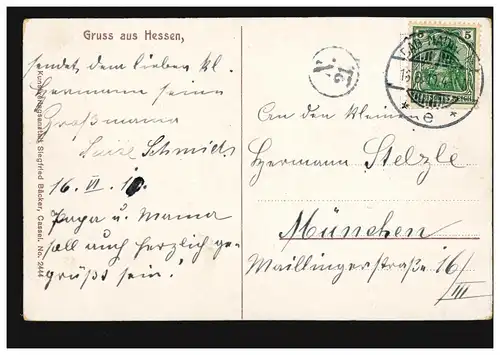 Gruss aus Hessen,
sendet dem lieben kl.
Hermann seine
Großmama
Luise Schmidt
16. VI. 10.
Papa u. Mama
soll auch herzlich ge-
grüßt sein.
Kunstverlagsanstalt Siegfried Bäcker, Cassel. No. 2444
5 5
e
An den kleinen
Hermann Stelzle
München
Maillingerstraße 16/
III